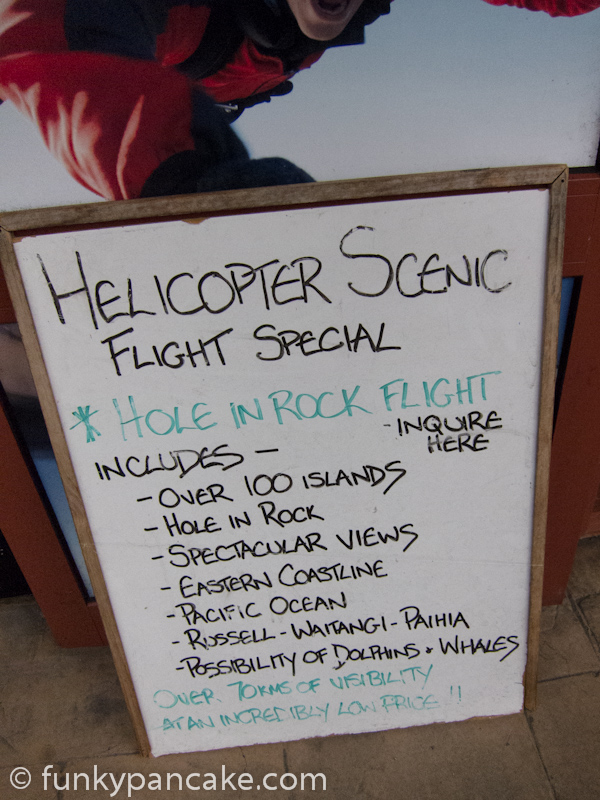 HELICOPTER SCENIC
FLIGHT SPECIAL
* HOLE IN ROCK FLIGHT
- INQUIRE
HERE
INCLUDES -
- OVER 100 ISLANDS
- HOLE IN ROCK
- SPECTACULAR VIEWS
- EASTERN COASTLINE
- PACIFIC OCEAN
- RUSSELL - WAITANGI - PAIHIA
- POSSIBILITY OF DOLPHINS & WHALES
OVER 70KMS OF VISIBILITY
AT AN INCREDIBLY LOW PRICE !!
© funkypancake.com